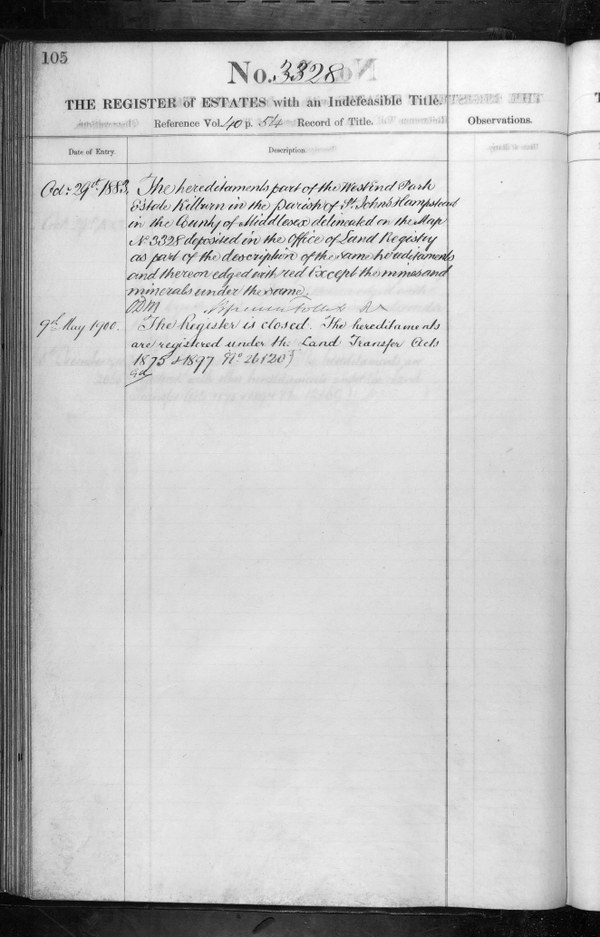 105
No. 3328
THE REGISTER of ESTATES with an Indefeasible Title.
Reference Vol. 40 p. 54 Record of Title.
Observations.
Date of Entry.
Description.
Oct: 29th 1883.
The hereditaments part of the West end Park
Estate Kilburn in the Parish of St. Johns Hampstead
in the County of Middlesex delineated on the Map
No 3328 deposited in the Office of Land Registry
as part of the description of the same hereditaments
and thereon edged with red Except the mines and
minerals under the same.
9th May 1900.
The Register is closed. The hereditaments
are registered under the Land Transfer Acts
1875 & 1897 No 26120